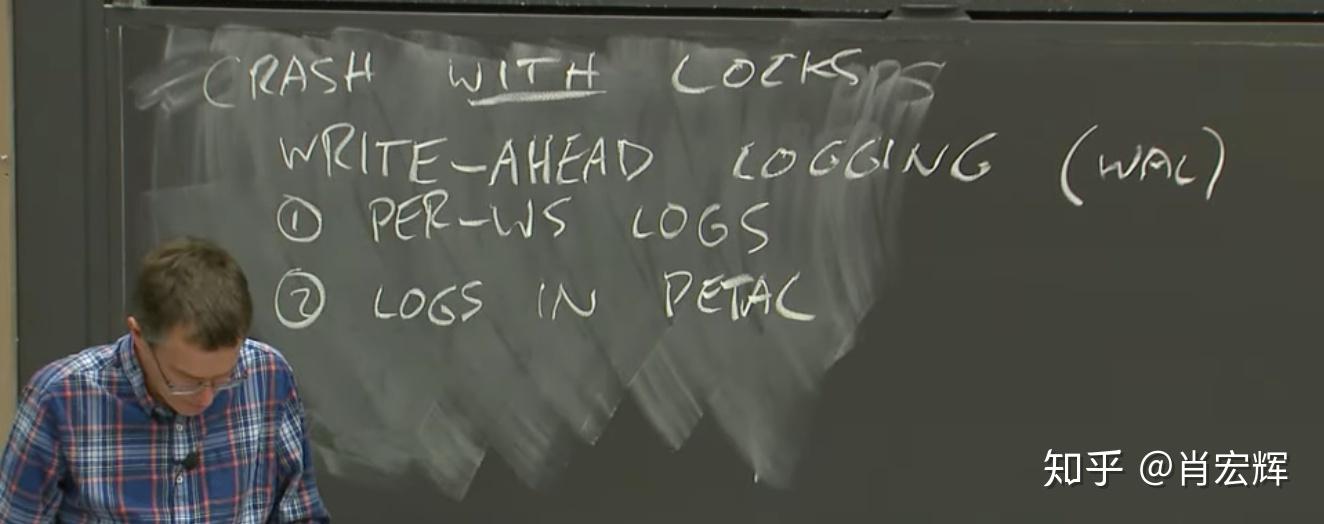 CRASH WITH LOCKS
WRITE-AHEAD LOGGING (WAL)
① PER-WS LOGS
② LOGS IN PETAL
知乎 @肖宏辉